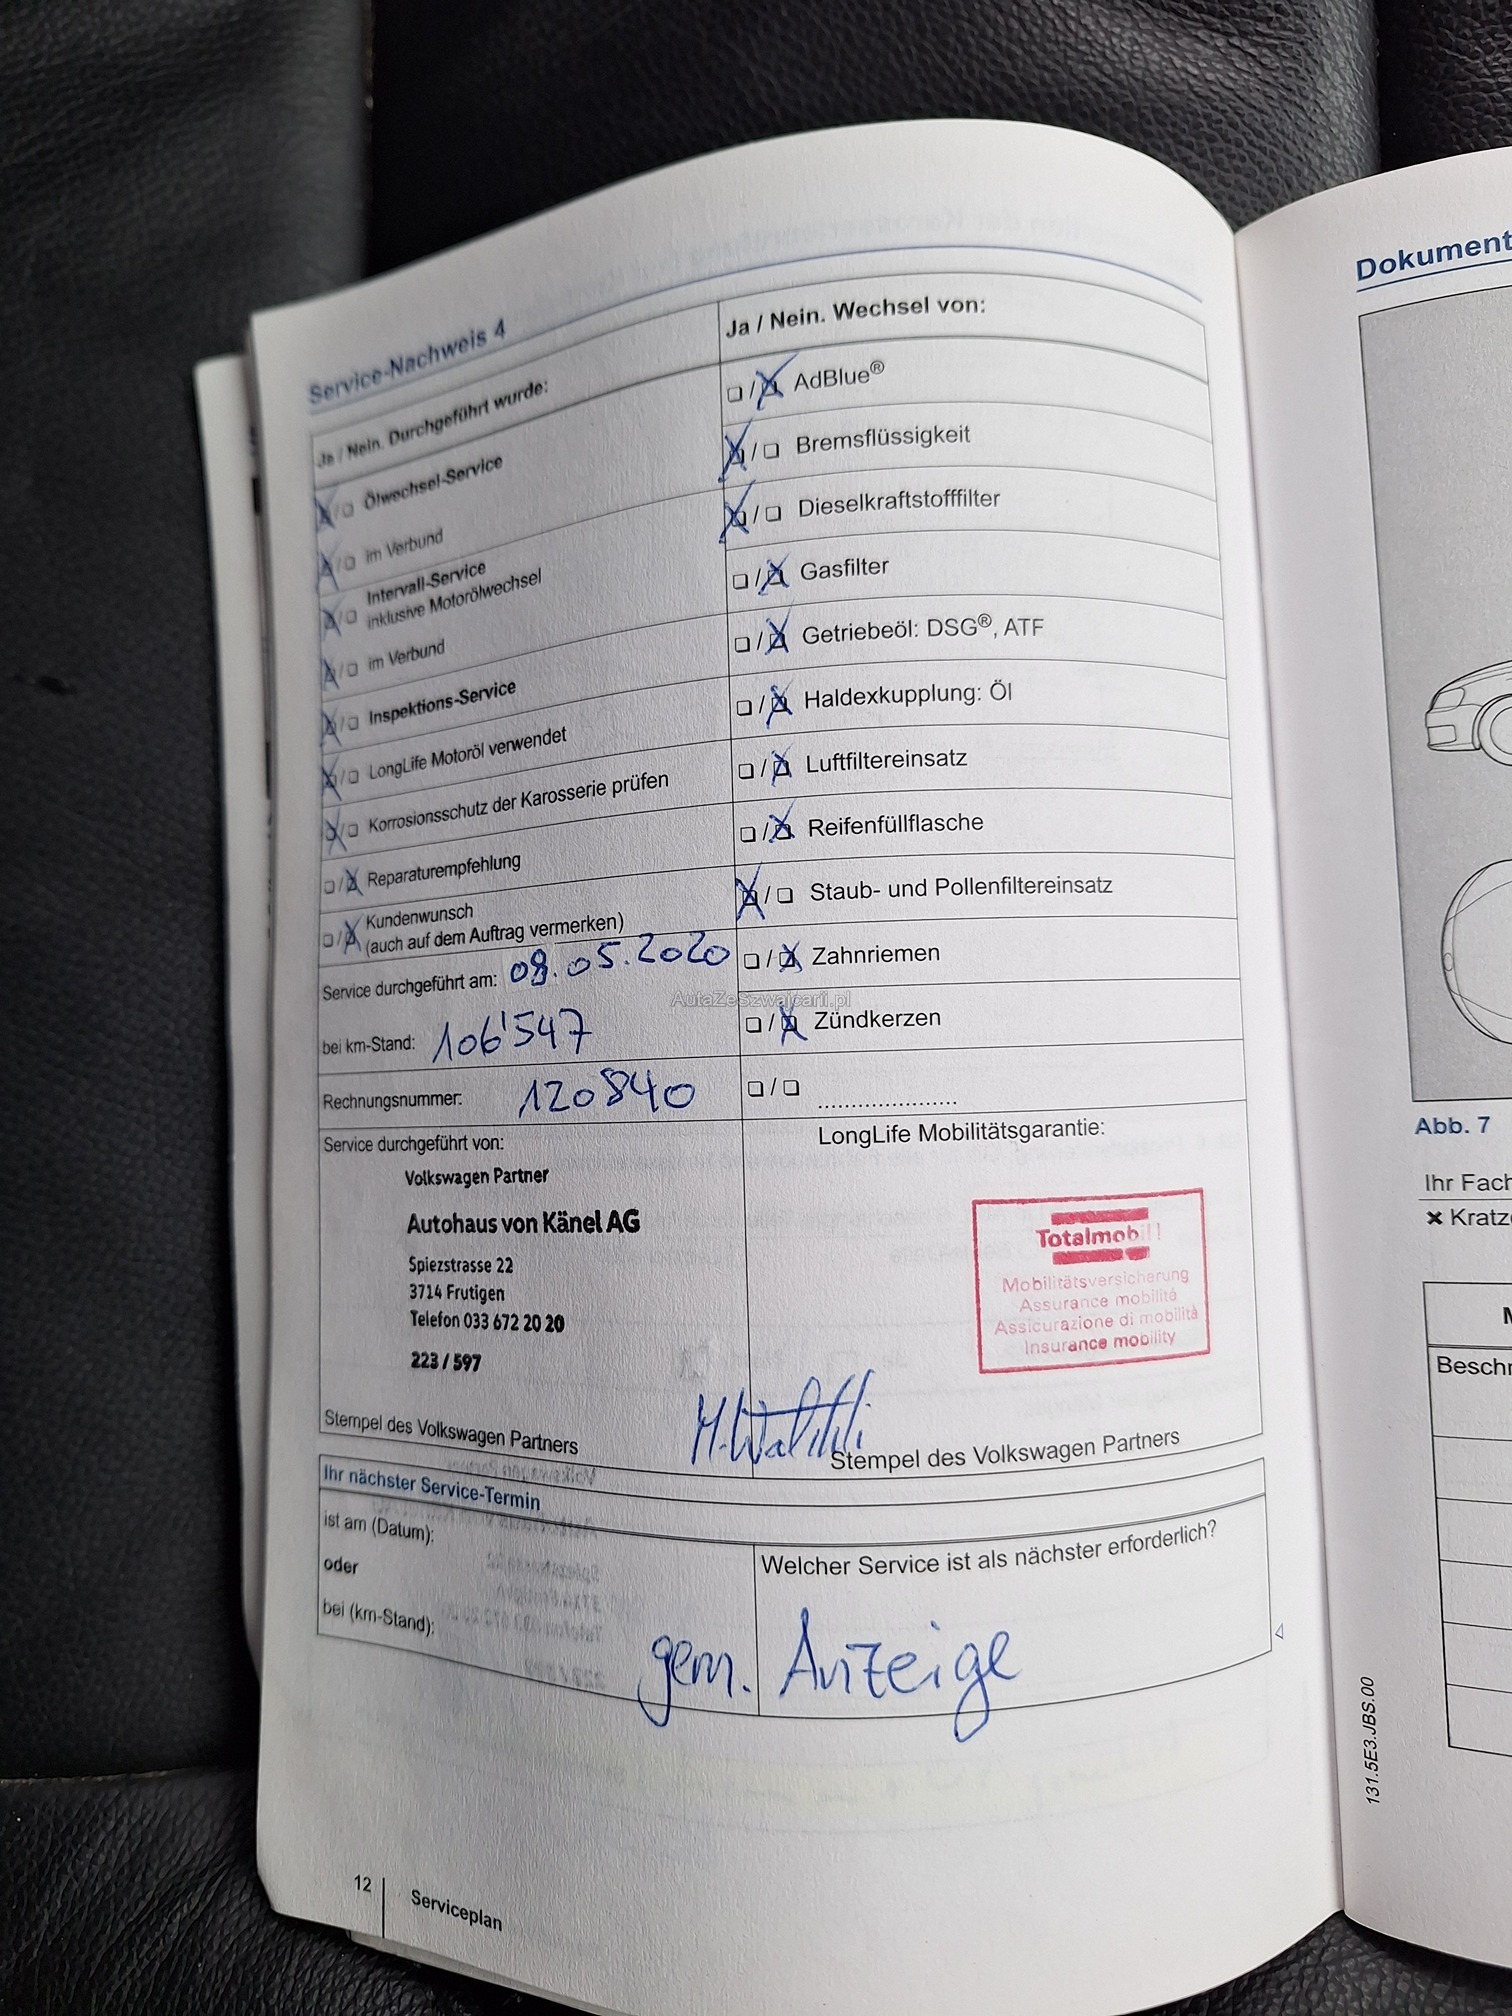 Service-Nachweis 4
Ja / Nein. Durchgeführt wurde:
Ölwechsel-Service
im Verbund
Intervall-Service
inklusive Motorölwechsel
im Verbund
Inspektions-Service
LongLife Motoröl verwendet
Korrosionsschutz der Karosserie prüfen
Reparaturempfehlung
Kundenwunsch
(auch auf dem Auftrag vermerken)
Service durchgeführt am: 08.05.2020
bei km-Stand: 106'547
Rechnungsnummer: 120840
Ja / Nein. Wechsel von:
AdBlue®
Bremsflüssigkeit
Dieselkraftstofffilter
Gasfilter
Getriebeöl: DSG®, ATF
Haldexkupplung: Öl
Luftfiltereinsatz
Reifenfüllflasche
Staub- und Pollenfiltereinsatz
Zahnriemen
Zündkerzen
.....................
AutaZeSzwajcarii.pl
Service durchgeführt von:
Volkswagen Partner
Autohaus von Känel AG
Spiezstrasse 22
3714 Frutigen
Telefon 033 672 20 20
223 / 597
Stempel des Volkswagen Partners
LongLife Mobilitätsgarantie:
Totalmobil!
Mobilitätsversicherung
Assurance mobilité
Assicurazione di mobilità
Insurance mobility
Stempel des Volkswagen Partners
Ihr nächster Service-Termin
ist am (Datum):
oder
bei (km-Stand):
Welcher Service ist als nächster erforderlich?
gem. Anzeige
12
Serviceplan
Dokument
Abb. 7
Ihr Fach
Kratz
Besch
131.5E3.JBS.00